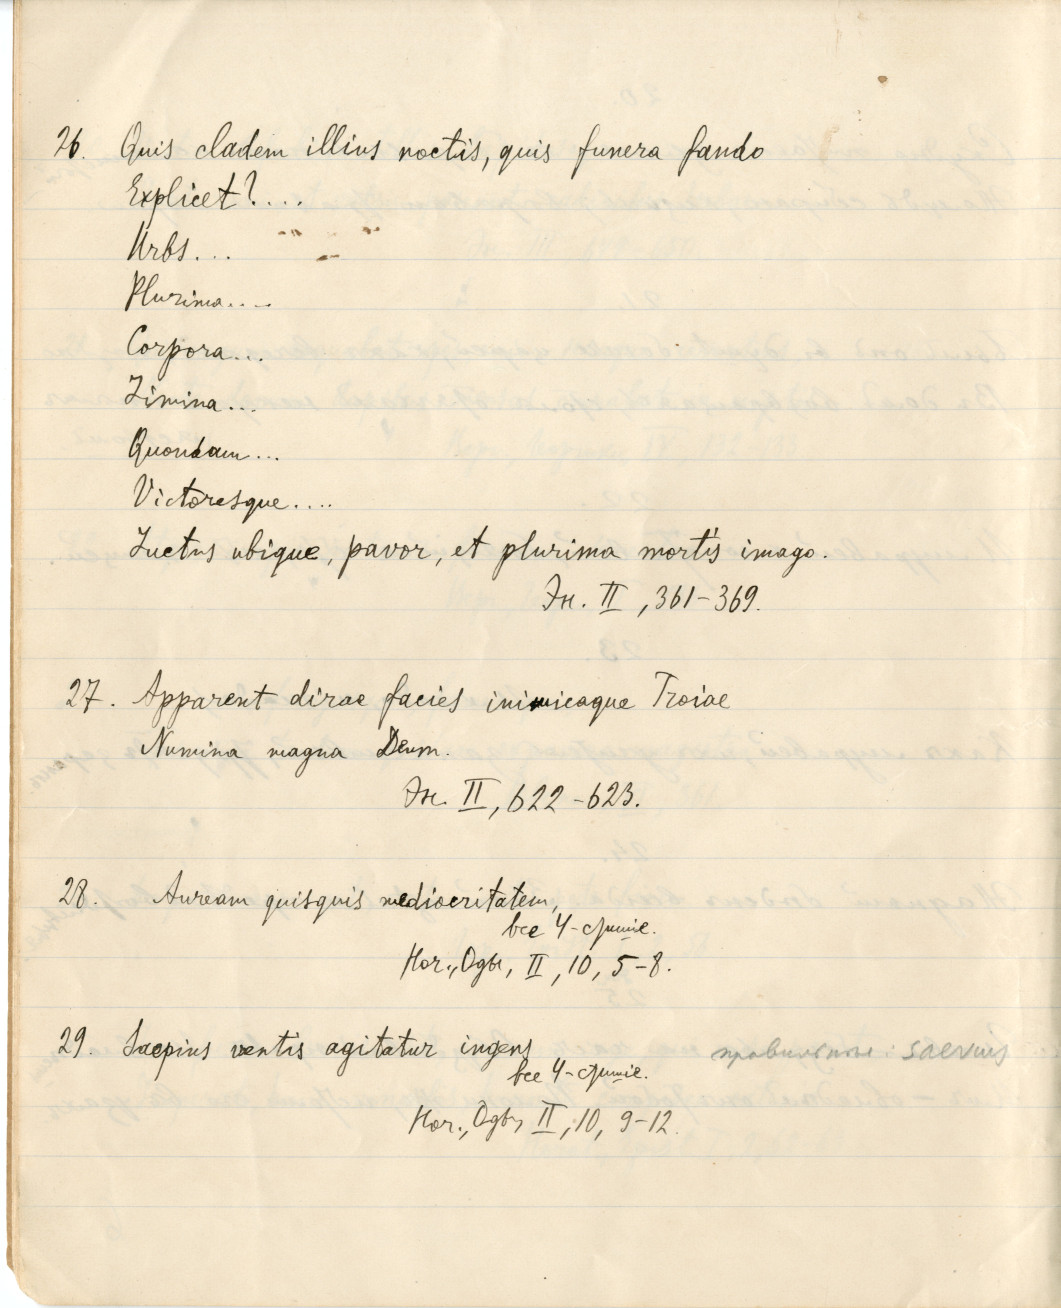 26. Quis cladem illius noctis, quis funera fando
Explicet?...
Urbs...
Plurima....
Corpora...
Limina...
Quondam...
Victoresque....
Luctus ubique, pavor, et plurima mortis imago.
Эн. II, 361-369.
27. Apparent dirae facies inimicaque Troiae
Numina magna Deum.
Эн. II, 622-623.
28. Auream quisquis mediocritatem,
все 4-стишие.
Hor., Оды, II, 10, 5-8.
29. Saepius ventis agitatur ingens
правильнее: saevius
все 4-стишие.
Hor., Оды, II, 10, 9-12.